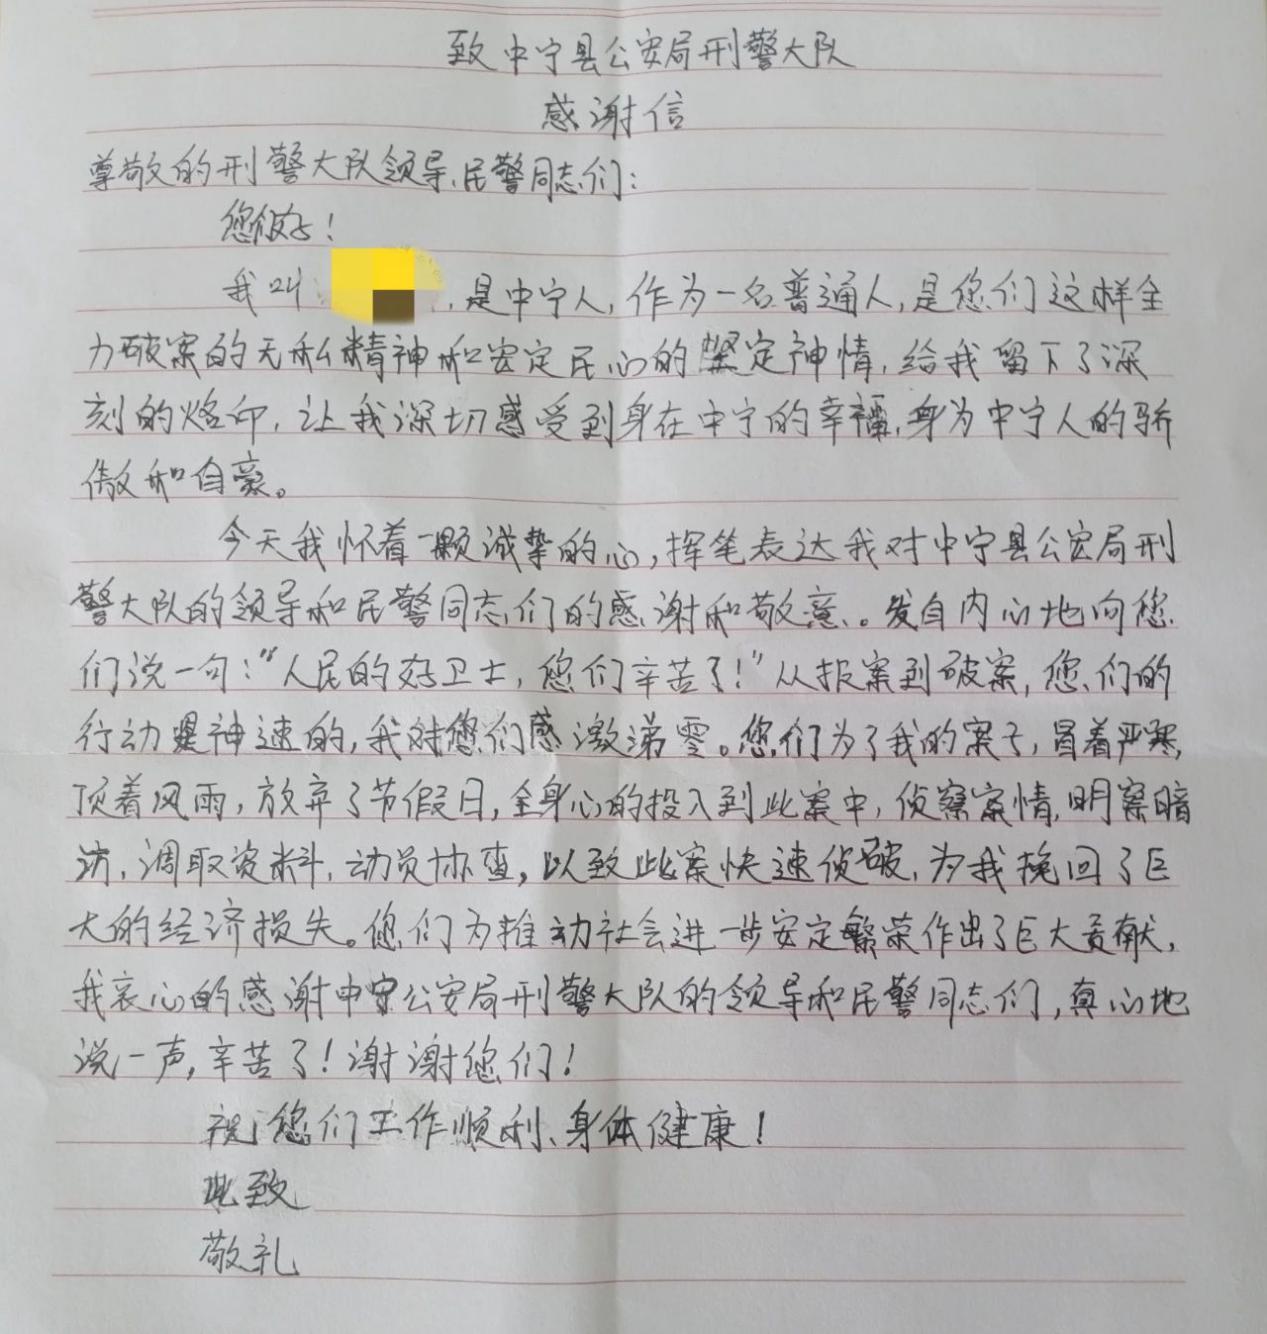 致中宁县公安局刑警大队
感谢信
尊敬的刑警大队领导、民警同志们：
您们好！
我叫，是中宁人，作为一名普通人，是您们这样全
力破案的无私精神和安定民心的坚定神情，给我留下了深
刻的烙印，让我深切感受到身在中宁的幸福，身为中宁人的骄
傲和自豪。
今天我怀着一颗诚挚的心，挥笔表达我对中宁县公安局刑
警大队的领导和民警同志们的感谢和敬意。发自内心地向您
们说一句：“人民的好卫士，您们辛苦了！”从报案到破案，您们的
行动是神速的，我对您们感激涕零。您们为了我的案子，冒着严寒，
顶着风雨，放弃了节假日，全身心的投入到此案中，侦察案情，明察暗
访，调取资料，动员协查，以致此案快速侦破，为我挽回了巨
大的经济损失。您们为推动社会进一步安定繁荣作出了巨大贡献，
我衷心的感谢中宁公安局刑警大队的领导和民警同志们，真心地
说一声，辛苦了！谢谢您们！
祝您们工作顺利、身体健康！
此致
敬礼